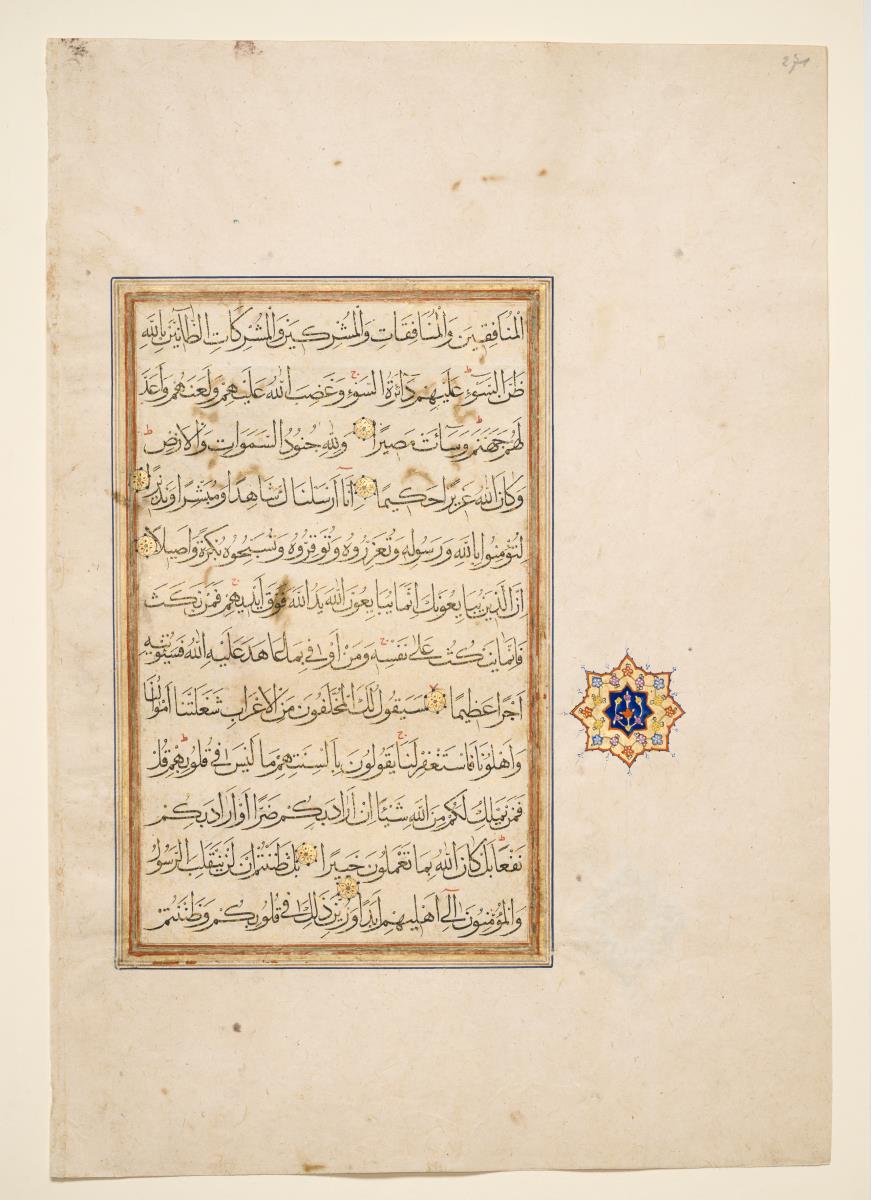 271
الْمُنَافِقِينَ وَالْمُنَافِقَاتِ وَالْمُشْرِكِينَ وَالْمُشْرِكَاتِ الظَّآنِّينَ بِاللَّهِ
ظَنَّ السَّوْءِ عَلَيْهِمْ دَآئِرَةُ السَّوْءِ وَغَضِبَ اللَّهُ عَلَيْهِمْ وَلَعَنَهُمْ وَاَعَدَّ
لَهُمْ جَهَنَّمَ وَسَآئَتْ مَصِيرًا وَلِلَّهِ جُنُودُ السَّمَوَاتِ وَالْاَرْضِ
وَكَانَ اللَّهُ عَزِيزًا حَكِيمًا اِنَّآ اَرْسَلْنَاكَ شَاهِدًا وَمُبَشِّرًا وَنَذِيرًا
لِتُؤْمِنُوا بِاللَّهِ وَرَسُولِهِ وَتُعَزِّرُوهُ وَتُوَقِّرُوهُ وَتُسَبِّحُوهُ بُكْرَةً وَاَصِيلًا
اِنَّ الَّذِينَ يُبَايِعُونَكَ اِنَّمَا يُبَايِعُونَ اللَّهَ يَدُ اللَّهِ فَوْقَ اَيْدِيهِمْ فَمَنْ نَكَثَ
فَاِنَّمَا يَنْكُثُ عَلَى نَفْسِهِ وَمَنْ اَوْفَى بِمَا عَاهَدَ عَلَيْهِ اللَّهَ فَسَيُؤْتِيهِ
اَجْرًا عَظِيمًا سَيَقُولُ لَكَ الْمُخَلَّفُونَ مِنَ الْاَعْرَابِ شَغَلَتْنَا اَمْوَالُنَا
وَاَهْلُونَا فَاسْتَغْفِرْ لَنَا يَقُولُونَ بِاَلْسِنَتِهِمْ مَا لَيْسَ فِى قُلُوبِهِمْ قُلْ
فَمَنْ يَمْلِكُ لَكُمْ مِنَ اللَّهِ شَيْئًا اِنْ اَرَادَ بِكُمْ ضَرًّا اَوْ اَرَادَ بِكُمْ
نَفْعًا بَلْ كَانَ اللَّهُ بِمَا تَعْمَلُونَ خَبِيرًا بَلْ ظَنَنْتُمْ اَنْ لَنْ يَنْقَلِبَ الرَّسُولُ
وَالْمُؤْمِنُونَ اِلَى اَهْلِيهِمْ اَبَدًا وَزُيِّنَ ذَلِكَ فِى قُلُوبِكُمْ وَظَنَنْتُمْ